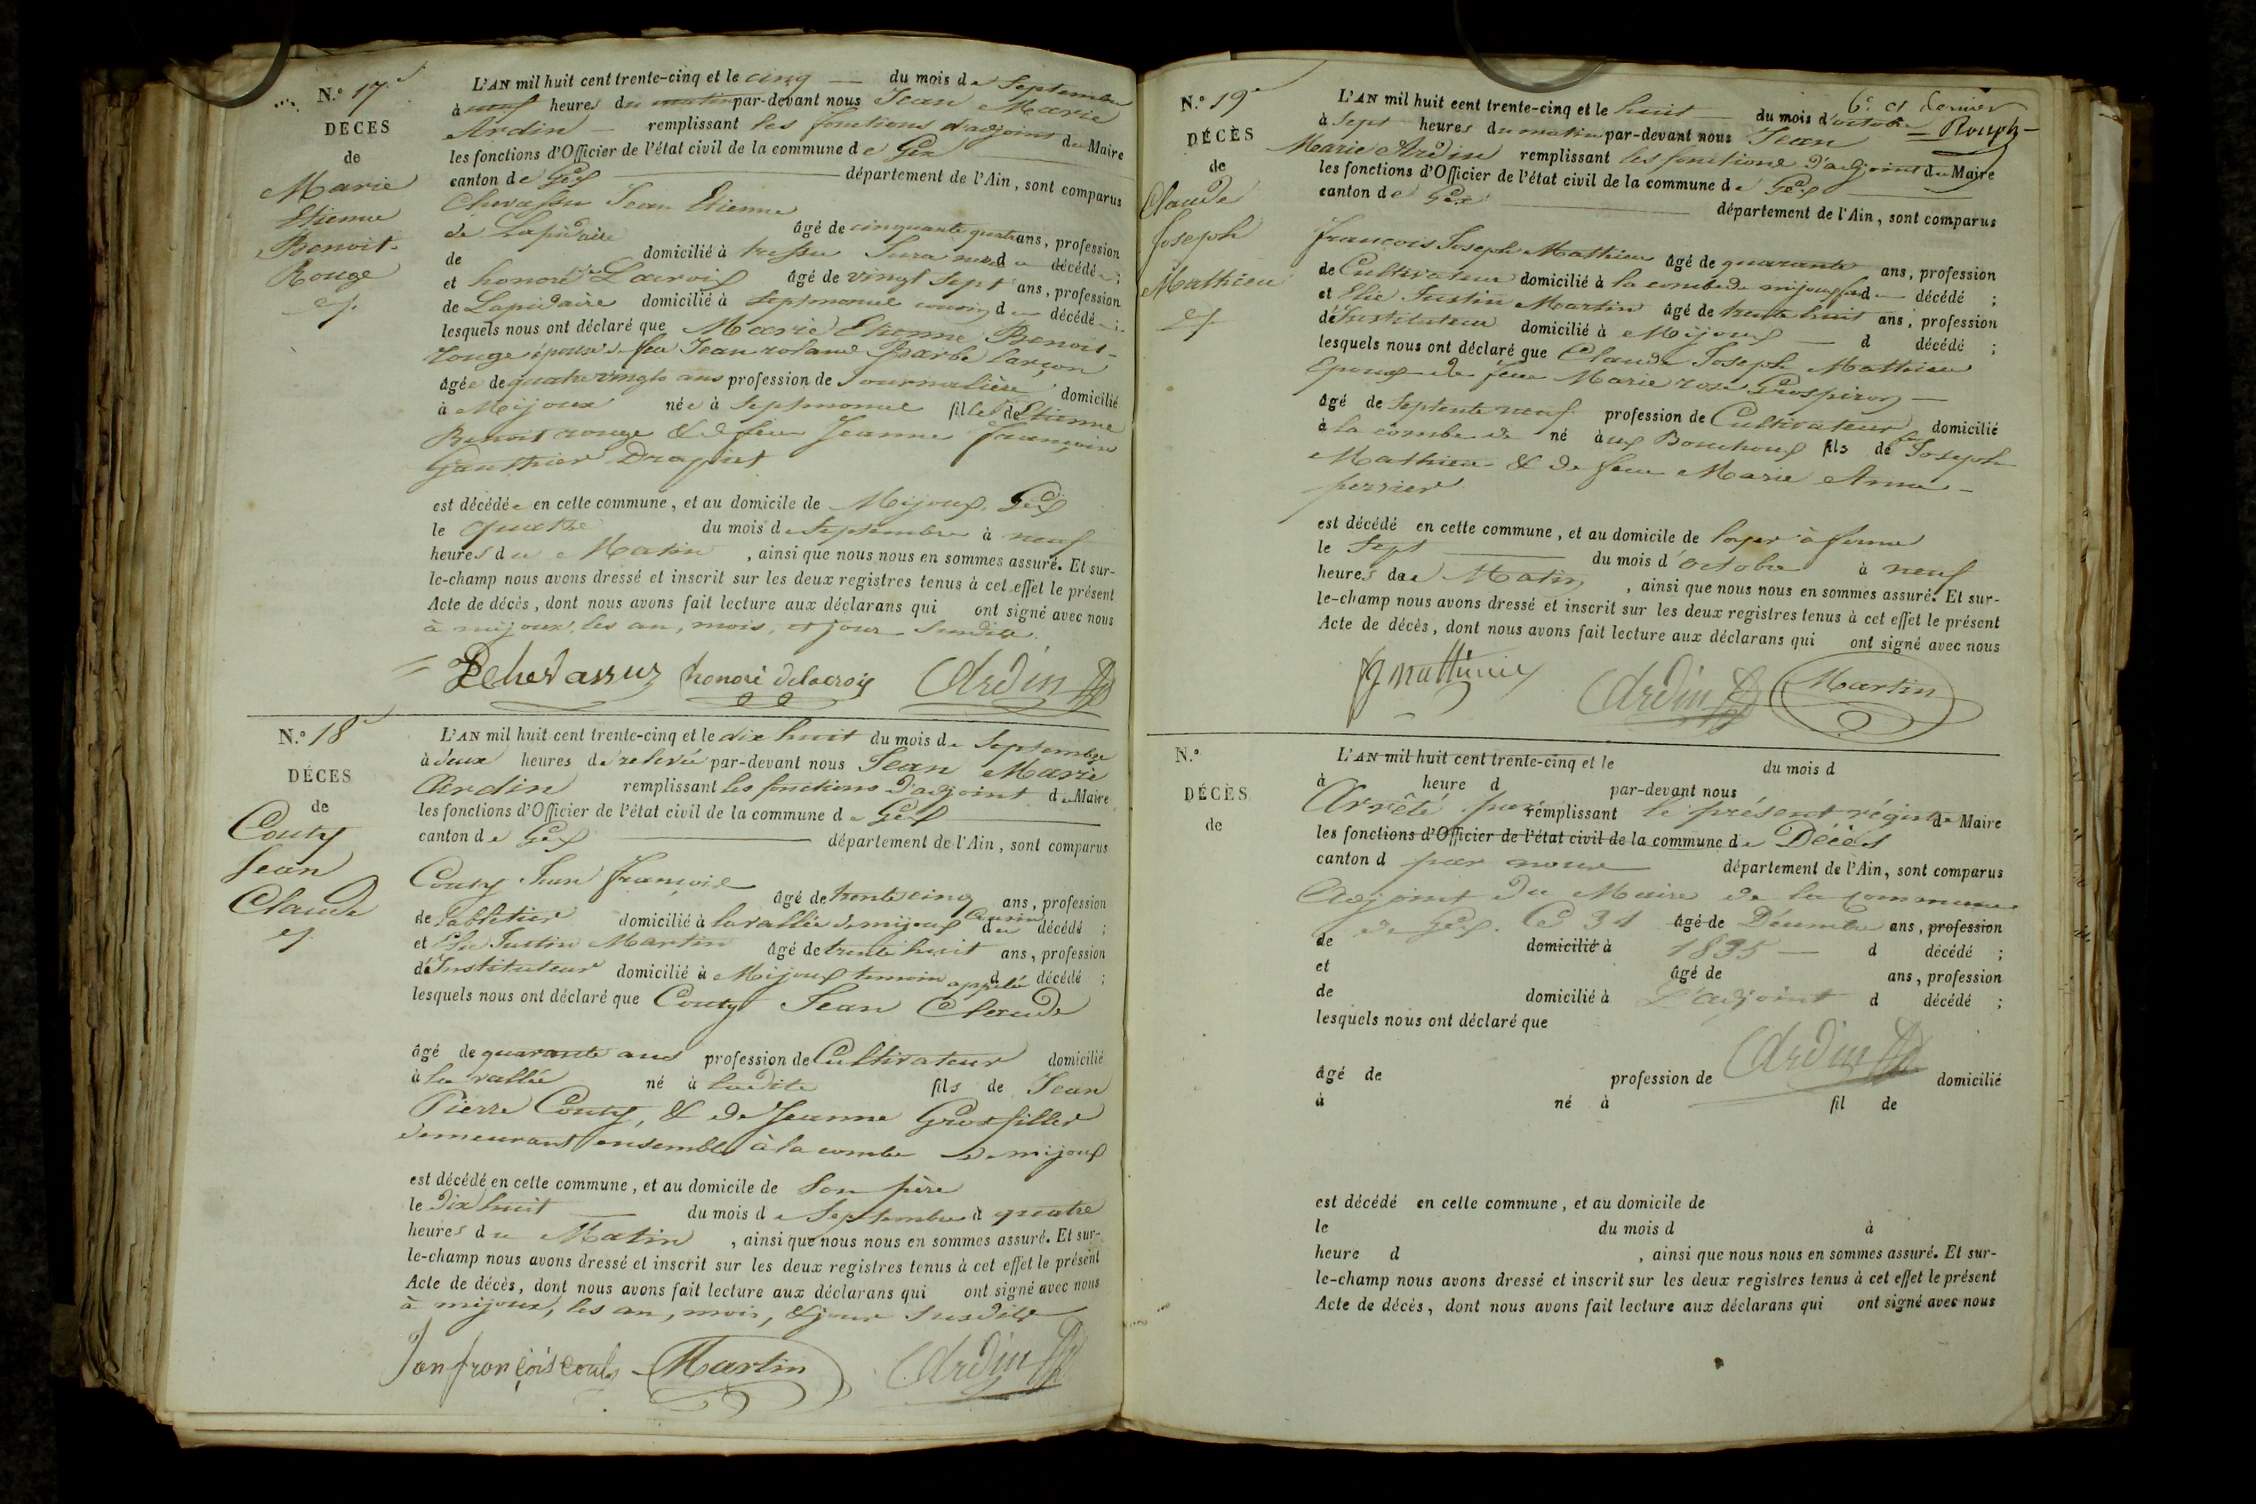 N.° 17
DÉCES
de
Marie
Etienne
Benoit-
Rouge
L'AN mil huit cent trente-cinq et le cinq du mois de Septembre
à neuf heures du matin par-devant nous Jean Marie
Ardin remplissant les fonctions d'adjoint du Maire
les fonctions d'Officier de l'état civil de la commune de Gex
canton de Gex département de l'Ain, sont comparus
Chevassu Jean Etienne
âgé de cinquante quatre ans, profession
de Lapidaire domicilié à Jura d décédé ;
et honoré âgé de vingt sept ans, profession
de Lapidaire domicilié à Septmoncel cousin d décédé ;
lesquels nous ont déclaré que Marie Etienne Benoit-
rouge épouse de feu Jean roland Barbe larçon
âgée de quatre vingts ans profession de Journalière domicilié
à Mijoux née à Septmoncel fille de Etienne
Benoit rouge & de feue Jeanne françoise
Gauthier Dragint
est décédée en cette commune, et au domicile de Mijoux, Gex
le quatre du mois de Septembre à neuf
heures du Matin, ainsi que nous nous en sommes assuré. Et sur-
le-champ nous avons dressé et inscrit sur les deux registres tenus à cet effet le présent
Acte de décès, dont nous avons fait lecture aux déclarans qui ont signé avec nous
à mijoux, les an, mois, et jour susdits.
Chevassus honoré delacroix Ardin
N.° 18
DÉCES
de
Couty
Jean
Claude
L'AN mil huit cent trente-cinq et le dix huit du mois de Septembre
à deux heures de relevée par-devant nous Jean Marie
Ardin remplissant les fonctions d'adjoint du Maire
les fonctions d'Officier de l'état civil de la commune de Gex
canton de Gex département de l'Ain, sont comparus
Couty Jean françois
âgé de trente cinq ans, profession
de Tabletier domicilié à la vallée de mijoux Cousin du décédé ;
et Elie Justin Martin âgé de trente huit ans, profession
d'Instituteur domicilié à Mijoux temoin appelé d décédé ;
lesquels nous ont déclaré que Couty Jean Claude
âgé de quarante ans profession de Cultivateur domicilié
à la vallée né à ladite fils de Jean
Pierre Couty, & de Jeanne Grosfiller
demeurant ensemble à la combe de mijoux
est décédé en cette commune, et au domicile de Son père
le Dix huit du mois de Septembre à quatre
heures du Matin, ainsi que nous nous en sommes assuré. Et sur-
le-champ nous avons dressé et inscrit sur les deux registres tenus à cet effet le présent
Acte de décès, dont nous avons fait lecture aux déclarans qui ont signé avec nous
à mijoux, les an, mois, & jour susdits
Martin Ardin
6.e et dernier
N.° 19
DÉCÈS
de
Claude
Joseph
Mathieu
L'AN mil huit cent trente-cinq et le huit du mois d'octobre
à Sept heures du matin par-devant nous Jean
Marie Ardin remplissant les fonctions d'adjoint du Maire
les fonctions d'Officier de l'état civil de la commune de Gex
canton de Gex département de l'Ain, sont comparus
françois Joseph Mathieu âgé de quarante ans, profession
de Cultivateur domicilié à la combe de mijoux d décédé ;
et Elie Justin Martin âgé de trente huit ans, profession
d'Instituteur domicilié à Mijoux d décédé ;
lesquels nous ont déclaré que Claude Joseph Mathieu
Epoux de feue Marie rose
âgé de Septente neuf profession de Cultivateur domicilié
à la combe de né aux Bouchoux fils de feu Joseph
Mathieu & de feue Marie Anne
perrier
est décédé en cette commune, et au domicile de loyer à ferme
le Sept du mois d'octobre à neuf
heures du Matin, ainsi que nous nous en sommes assuré. Et sur-
le-champ nous avons dressé et inscrit sur les deux registres tenus à cet effet le présent
Acte de décès, dont nous avons fait lecture aux déclarans qui ont signé avec nous
Ardin Martin
N.°
DÉCÈS
de
L'AN mil huit cent trente-cinq et le du mois d
à heure d par-devant nous
Arrêté remplissant le présent régistre de Maire
les fonctions d'Officier de l'état civil de la commune de Décès
canton d par nous département de l'Ain, sont comparus
Adjoint du Maire de la Commune
de Gex. Ce 31 âgé de Décembre ans, profession
de domicilié à 1835 d décédé ;
et âgé de ans, profession
de domicilié à L'adjoint d décédé ;
lesquels nous ont déclaré que
Ardin
âgé de profession de domicilié
à né à fil de
est décédé en cette commune, et au domicile de
le du mois d à
heure d , ainsi que nous nous en sommes assuré. Et sur-
le-champ nous avons dressé et inscrit sur les deux registres tenus à cet effet le présent
Acte de décès, dont nous avons fait lecture aux déclarans qui ont signé avec nous